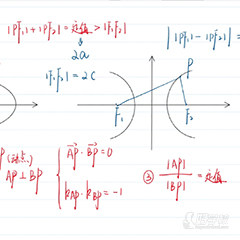 |PF₁|+|PF₂|=定值>|F₁F₂|
2a
|F₁F₂|=2C
||PF₁|-|PF₂|=
P
F₁
F₂
P(动点)
AP⊥BP
AP·BP=0
kAP·kBP=-1
③ |AP|/|BP|=定值